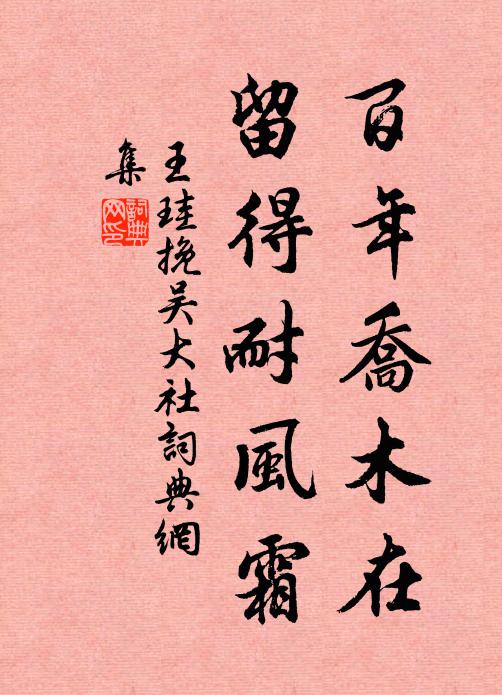 百年喬木在
留得耐風霜
王珪挽吴大社詞典網
集
詞典網印